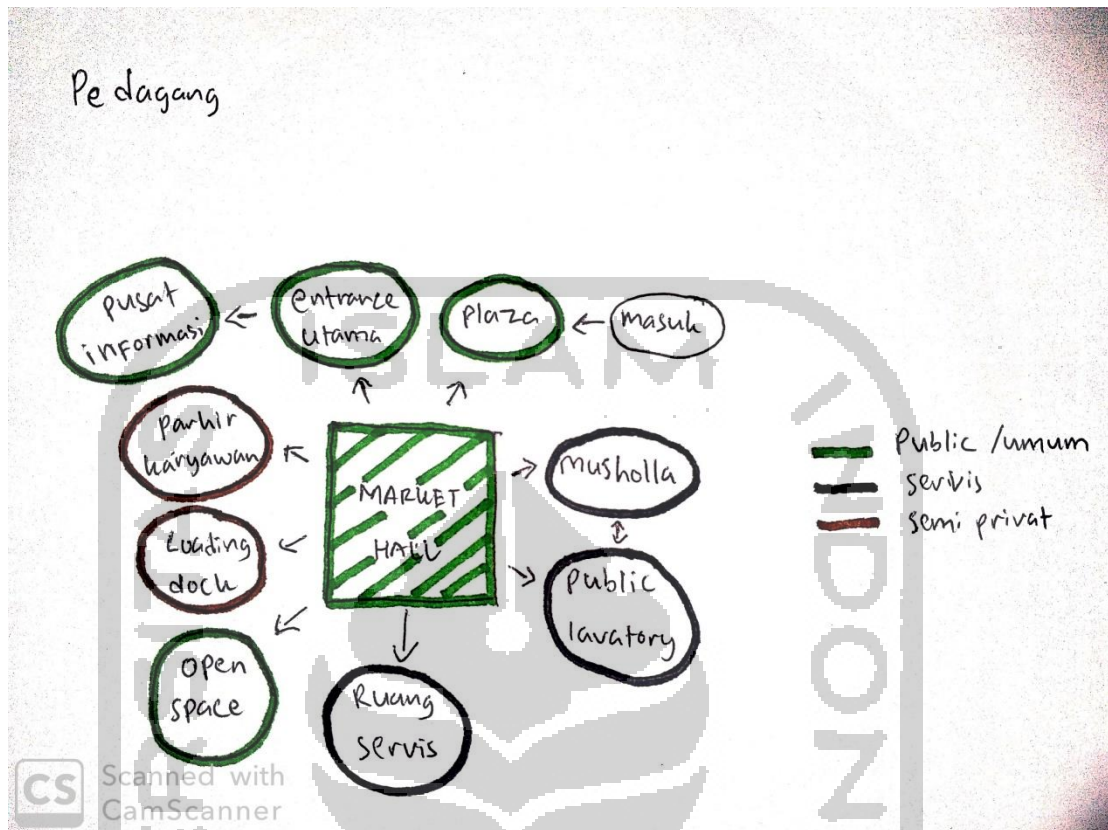 Pedagang
pusat
informasi
entrance
utama
plaza
masuk
parkir
karyawan
MARKET
HALL
musholla
Loading
dock
public
lavatory
open
space
Ruang
servis
Public /umum
servis
semi privat
ISLAM
INDON
CS
Scanned with
CamScanner